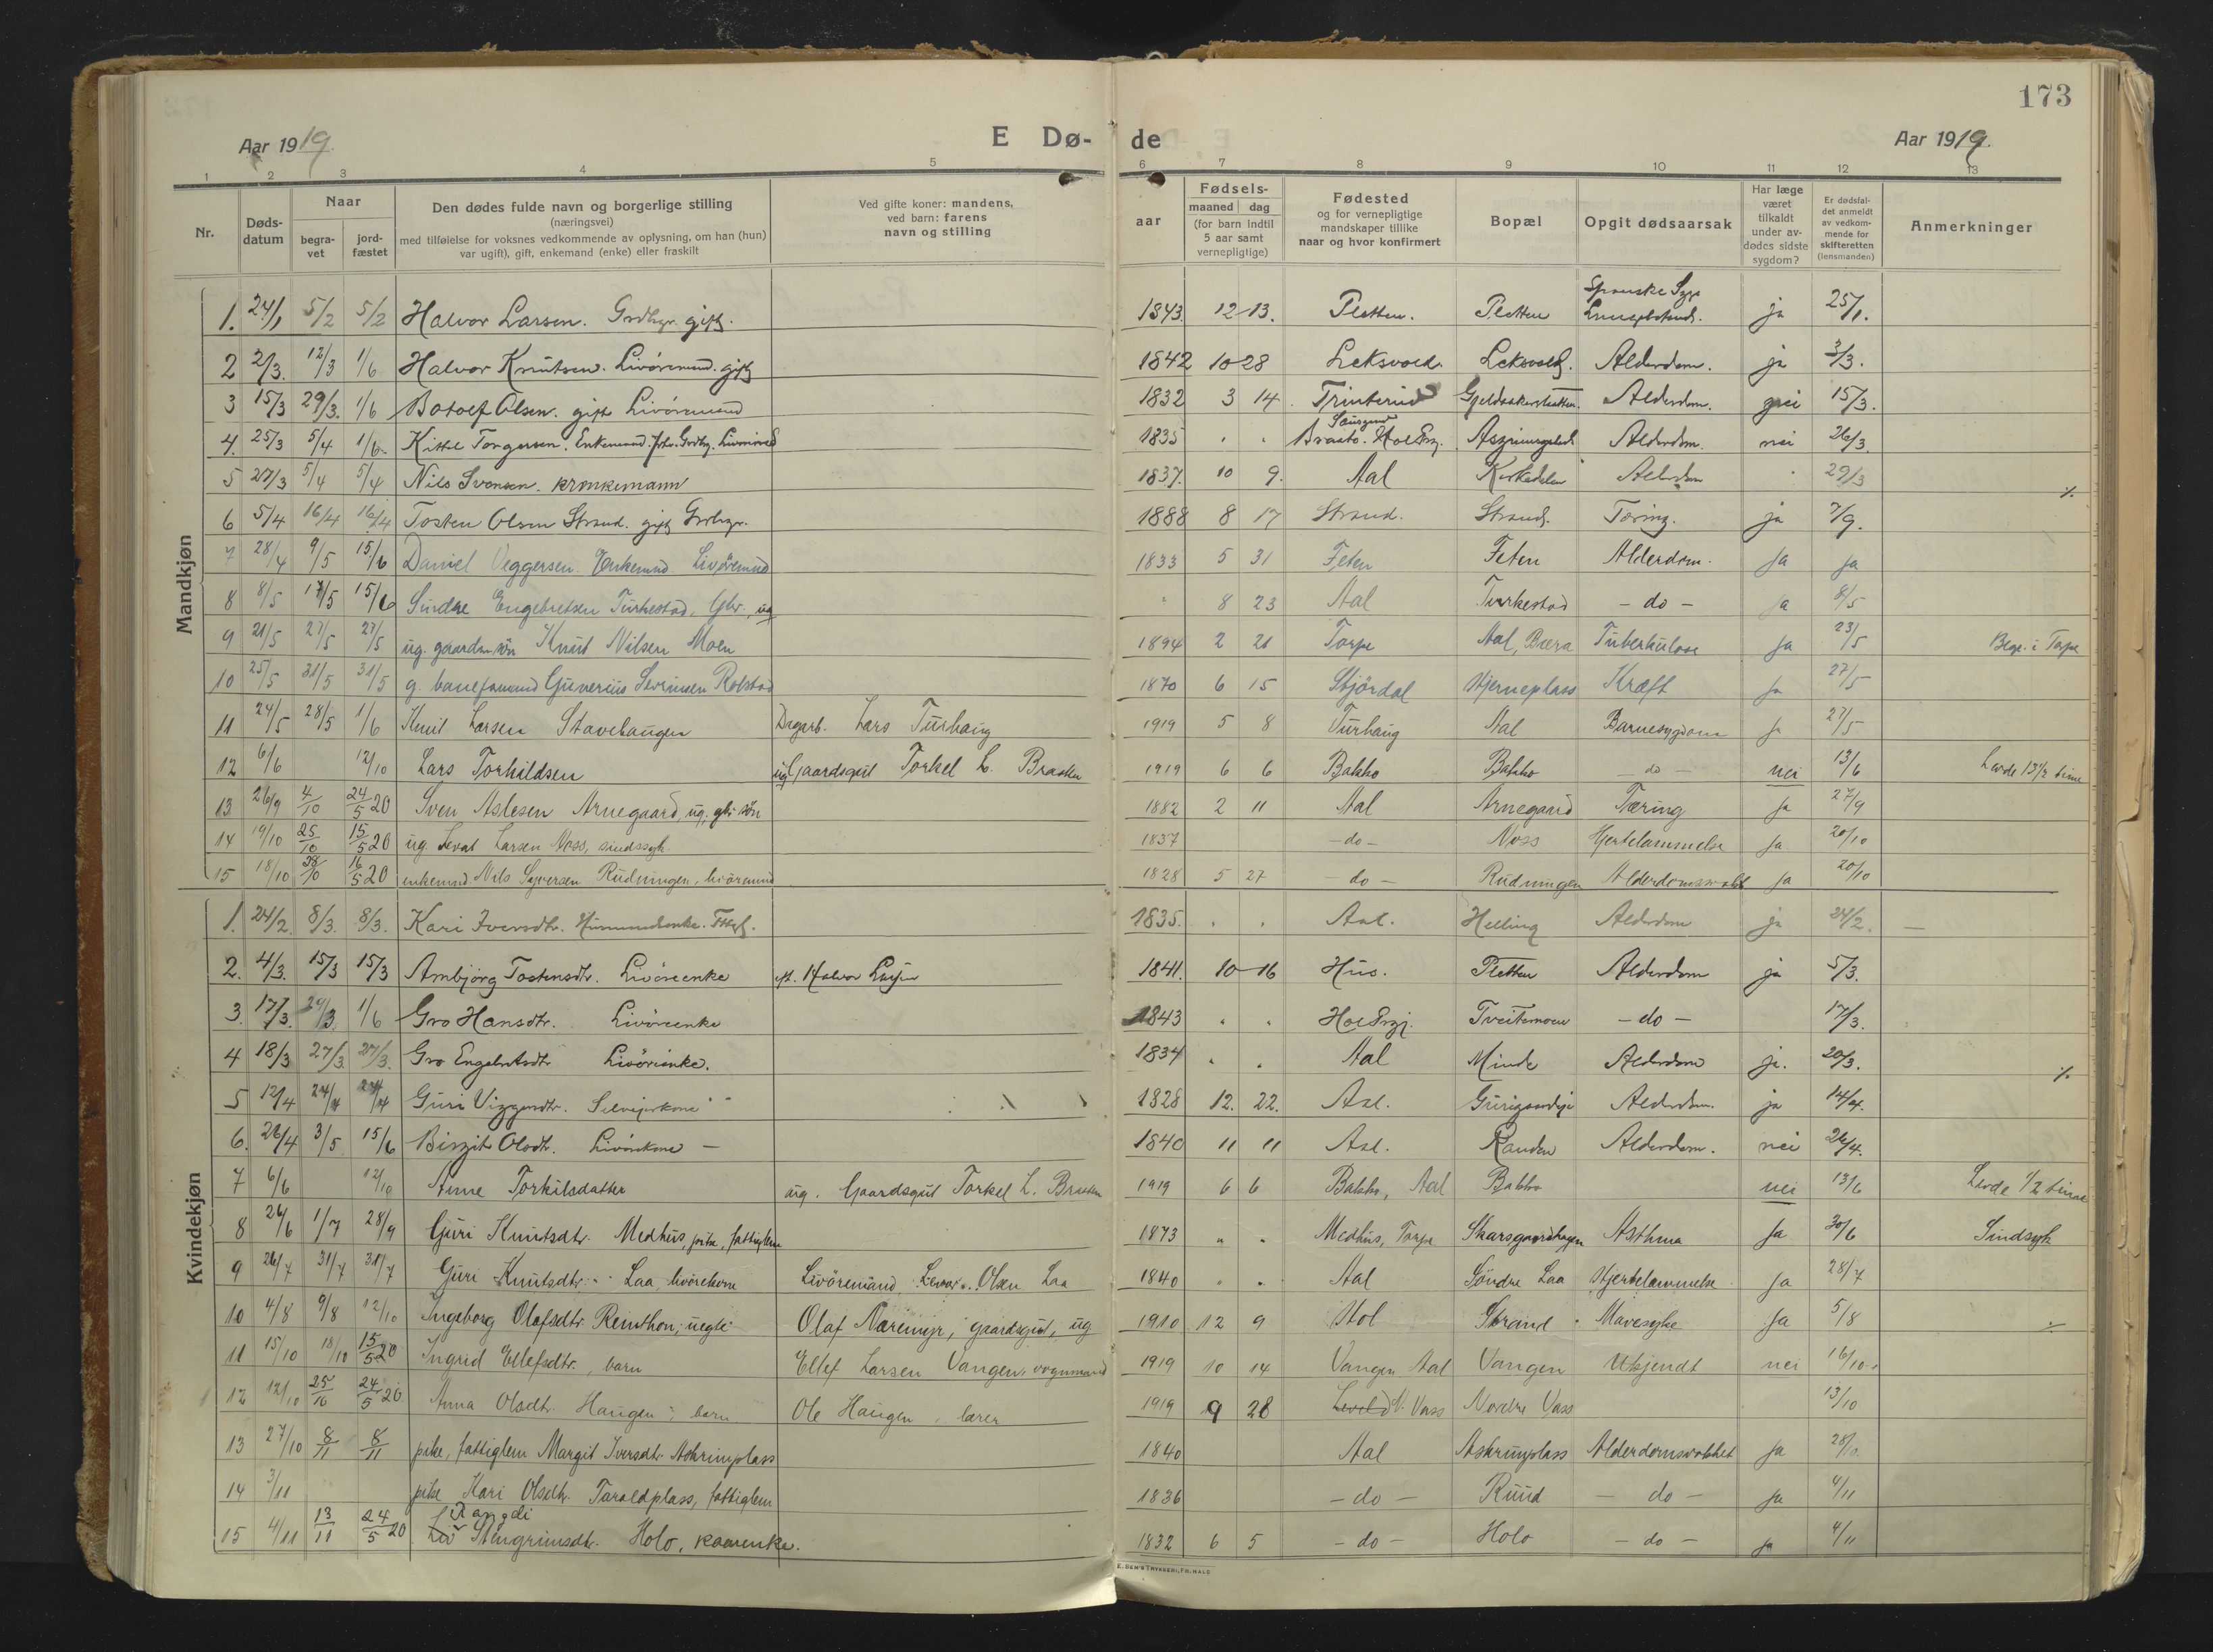 173
Aar 1919.
E Dø- de
Aar 1919.
1 2 3 4 5 6 7 8 9 10 11 12 13
Nr.
Døds-
datum
Naar
begra-
vet
jord-
fæstet
Den dødes fulde navn og borgerlige stilling
(næringsvei)
med tilføielse for voksnes vedkommende av oplysning, om han (hun)
var ugift), gift, enkemand (enke) eller fraskilt
Ved gifte koner: mandens,
ved barn: farens
navn og stilling
aar
Fødsels-
maaned dag
(for barn indtil
5 aar samt
vernepligtige)
Fødested
og for vernepligtige
mandskaper tillike
naar og hvor konfirmert
Bopæl
Opgit dødsaarsak
Har læge
været
tilkaldt
under av-
dødes sidste
sygdom?
Er dødsfal-
det anmeldt
av vedkom-
mende for
skifteretten
(lensmanden)
Anmerkninger
Mandkjøn
1. 24/1 5/2 5/2 Halvor Larsen. Grdbgr. gift. 1843. 12 13. Pletten. Pletten Spanske Syge ja 25/1.
2 2/3. 12/3 1/6 Halvor Knutsen. Livøremd. gift 1842 10 28 Leksvold. Leksvold. Alderdom. ja 3/3.
3 15/3 29/3. 1/6 Botolf Olsen. gift Livøremand 1832 3 14 Trinterud Alderdom. 15/3.
4. 25/3 5/4 1/6. Kittel Torgersen. Enkemand. 1835 " " Alderdom. nei 26/3.
5 27/3 5/4 5/4 Nils Svensen. kronkemann 1837. 10 9. Aal Kirkedelen Alderdom 29/3 ./.
6 5/4 16/4 16/4 Tosten Olsen Strand. gift Grdbgr. 1888 8 17 Strand. Strand. Tæring. ja 7/9.
7 28/4 9/5 15/6 Daniel Veggersen Enkemd Livøremd 1833 5 31 Feten Feten Alderdom. Ja Ja
8 8/5 17/5 15/6 Sindre Engebretsen Turkestad, Gbr., ug " 8 23 Aal Turkestad - do - Ja 8/5
9 21/5 27/5 27/5 ug. gaardm.søn Knut Nilsen Moen 1894 2 21 Torpe Aal, Bæra Tuberkulose Ja 23/5 Begr. i Torpe
10 25/5 31/5 31/5 g. baneformand Gunerius Rolstad 1870 6 15 Stjördal Stjerneplass Kræft Ja 27/5
11 24/5 28/5 1/6 Knut Larsen Stavehaugen Dagarb. Lars Turhaug 1919 5 8 Turhaug Aal Barnesygdom Ja 27/5
12 6/6 12/10 Lars Torkildsen ug. Gaardsgut Torkel L. Braaten 1919 6 6 Bakko Bakko - do - nei 13/6 Levde 13 1/2 time
13 26/9 4/10 24/5 20 Sven Aslesen Arnegaard, ug. gbr søn 1882 2 11 Aal Arnegaard Tæring Ja 27/9
14 19/10 25/10 15/5 20 ug. Levat Larsen Noss, sindssyk 1837 - do - Noss Hjertelammelse Ja 20/10
15 18/10 28/10 16/5 20 enkemd Nils Syversen Rudningen, livøremd 1828 5 27 - do - Rudningen Alderdomssvakh Ja 20/10
Kvindekjøn
1. 24/2. 8/3. 8/3. Kari Iversdtr. Husmandsenke. 1835. " " Aal. Helling Alderdom ja 24/2. —
2. 4/3. 15/3 15/3 Ambjørg Tostensdtr. Livøreenke Halvor 1841. 10 16 Hus. Pletten Alderdom ja 5/3.
3. 17/3. 24/3 1/6 Gro Hansdtr. Livøreenke 1843 " " Tveitemoen - do - 17/3.
4 18/3 27/3. 27/3. Gro Engebretsdtr Livøreenke. 1834 " " Aal Minde Alderdom ja. 20/3. ./.
5 12/4 24/4 24/4 Guri Viggersdtr. 1828 12. 22. Aal. Alderdom. ja 14/4.
6. 26/4 3/5 15/6 Birgit Olsdtr. Livørekone — 1840 11 11 Aal. Randen Alderdom. nei 26/4.
7 6/6 12/10 Anne Torkilsdatter ug. Gaardsgut Torkel L. Braaten 1919 6 6 Bakko, Aal Bakko nei 13/6 Levde 1/2 time
8 26/6 1/7 28/9 Guri Knutsdtr. Medhus, pike, fattiglem 1873 " " Medhus, Torpe Skarsgaardhagen Asthma Ja 30/6 Sindsyk
9 26/7 31/7 31/7 Guri Knutsdtr. Laa, livørekone Livøremand Levor Olsen Laa 1840 " " Aal Søndre Laa Hjertelammelse Ja 28/7
10 4/8 9/8 12/10 Ingeborg Olafsdtr Reinthon; uegte Olaf Næremyr, gaardsgut, ug 1910 12 9 Hol Strand Mavesyke Ja 5/8 ./.
11 15/10 18/10 15/5 20 Ingrid Ellefsdtr., barn Ellef Larsen Vangen, vognmand 1919 10 14 Vangen Aal Vangen Ukjendt nei 16/10
12 12/10 25/10 24/5 20 Anna Olsdtr. Haugen, barn Ole Haugen, lærer 1919 9 28 N. Vass Nordre Vass 13/10
13 27/10 8/11 8/11 pike, fattiglem Margit Iversdtr. Askrimplass 1840 Aal Askrimplass Alderdomssvakhet Ja 28/10.
14 3/11 pike Kari Olsdtr. Taraldplass, fattiglem 1836 - do - Ruud - do - Ja 4/11
Rangdi
15 4/11 13/11 24/5 20 Liv Stengrimsdtr. Holo, kaarenke. 1832 6 5 - do - Holo - do - Ja 4/11
E. SEM'S TRYKKERI, FR.HALD